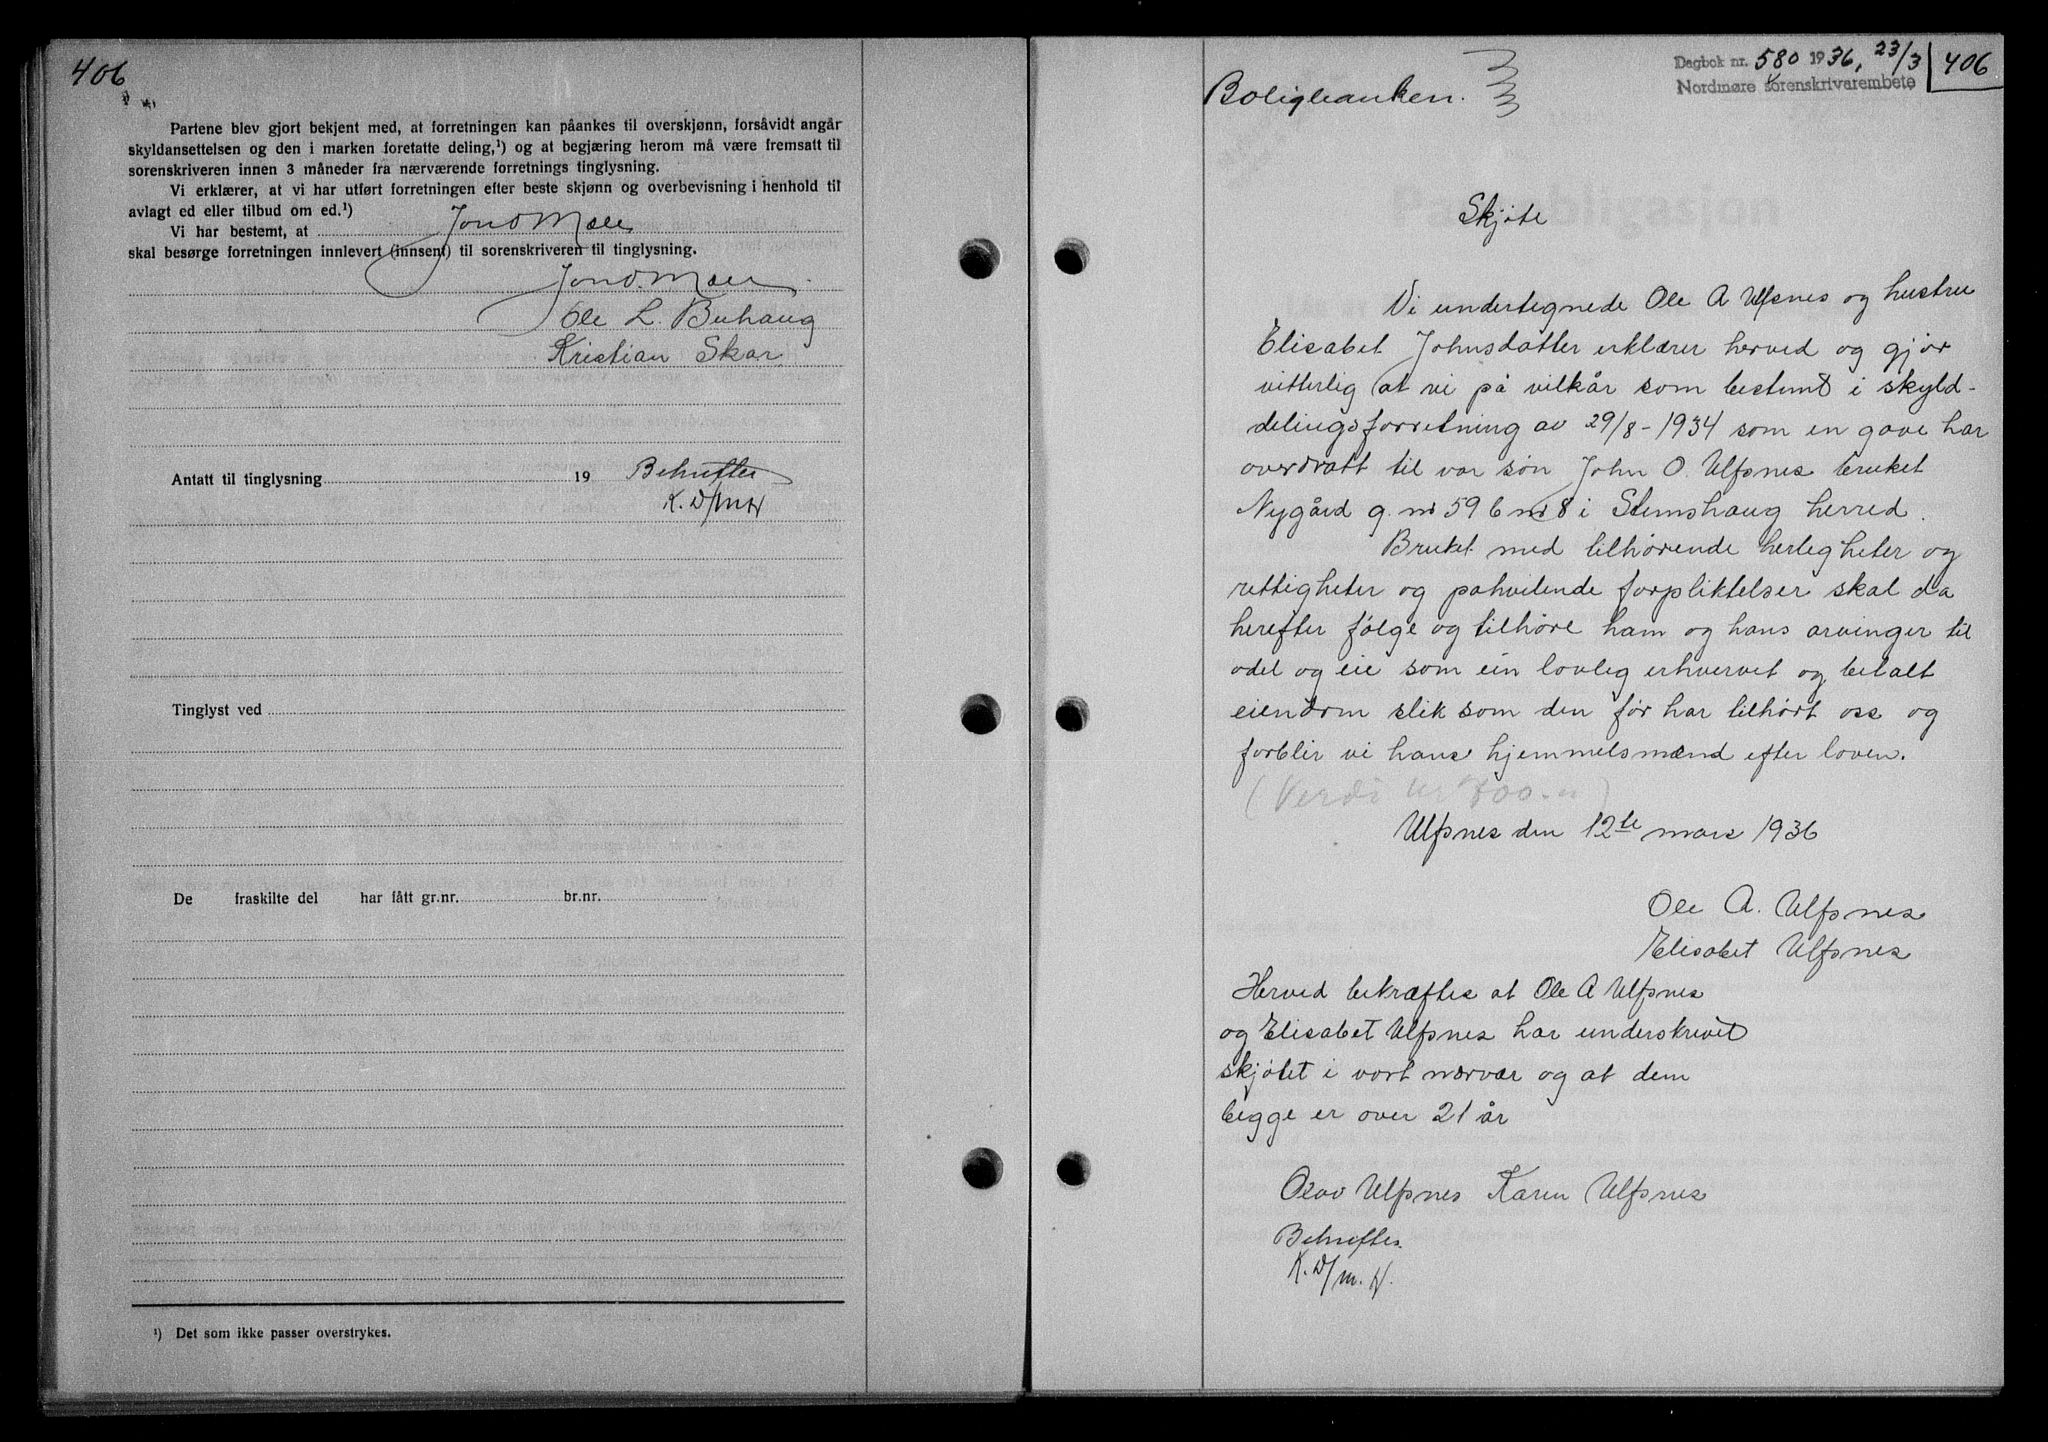 406
Partene blev gjort bekjent med, at forretningen kan påankes til overskjønn, forsåvidt angår
skyldansettelsen og den i marken foretatte deling,¹) og at begjæring herom må være fremsatt til
sorenskriveren innen 3 måneder fra nærværende forretnings tinglysning.
Vi erklærer, at vi har utført forretningen efter beste skjønn og overbevisning i henhold til
avlagt ed eller tilbud om ed.¹)
Vi har bestemt, at Jon O Moen
skal besørge forretningen innlevert (innsent) til sorenskriveren til tinglysning.
Jon O. Moen
Ole L. Buhaug
Kristian Skar
Antatt til tinglysning 19 Bekreftes
K. D/m H
Tinglyst ved
De fraskilte del har fått gr.nr. br.nr.
¹) Det som ikke passer overstrykes.
Dagbok nr. 580 1936, 23/3 406
Nordmøre sorenskrivarembete
Boligbanken.
Skjøte
Vi undertegnede Ole A Ulfsnes og hustru
Elisabet Johnsdatter erklærer herved og gjør
vitterlig at vi på vilkår som bestemt i skyld-
delingsforretning av 29/8-1934 som en gave har
overdratt til var søn John O. Ulfsnes bruket
Nygård g. nr 59 b nr 8 i Stemshaug herred.
Bruket med tilhørende herligheter og
rettigheter og påhvilende forpliktelser skal da
herefter følge og tilhøre ham og hans arvinger til
odel og eie som ein lovlig erhvervet og betalt
eiendom slik som den før har tilhørt oss og
forblir vi hans hjemmelsmænd efter loven.
(Verdi kr 800.-)
Ulfsnes den 12te mars 1936
Ole A. Ulfsnes
Elisabet Ulfsnes
Herved bekræftes at Ole A Ulfsnes
og Elisabet Ulfsnes har underskrivit
skjøtet i vort nærvær og at dem
begge er over 21 år
Olav Ulfsnes Karen Ulfsnes
Bekreftes.
K. D/m. H.